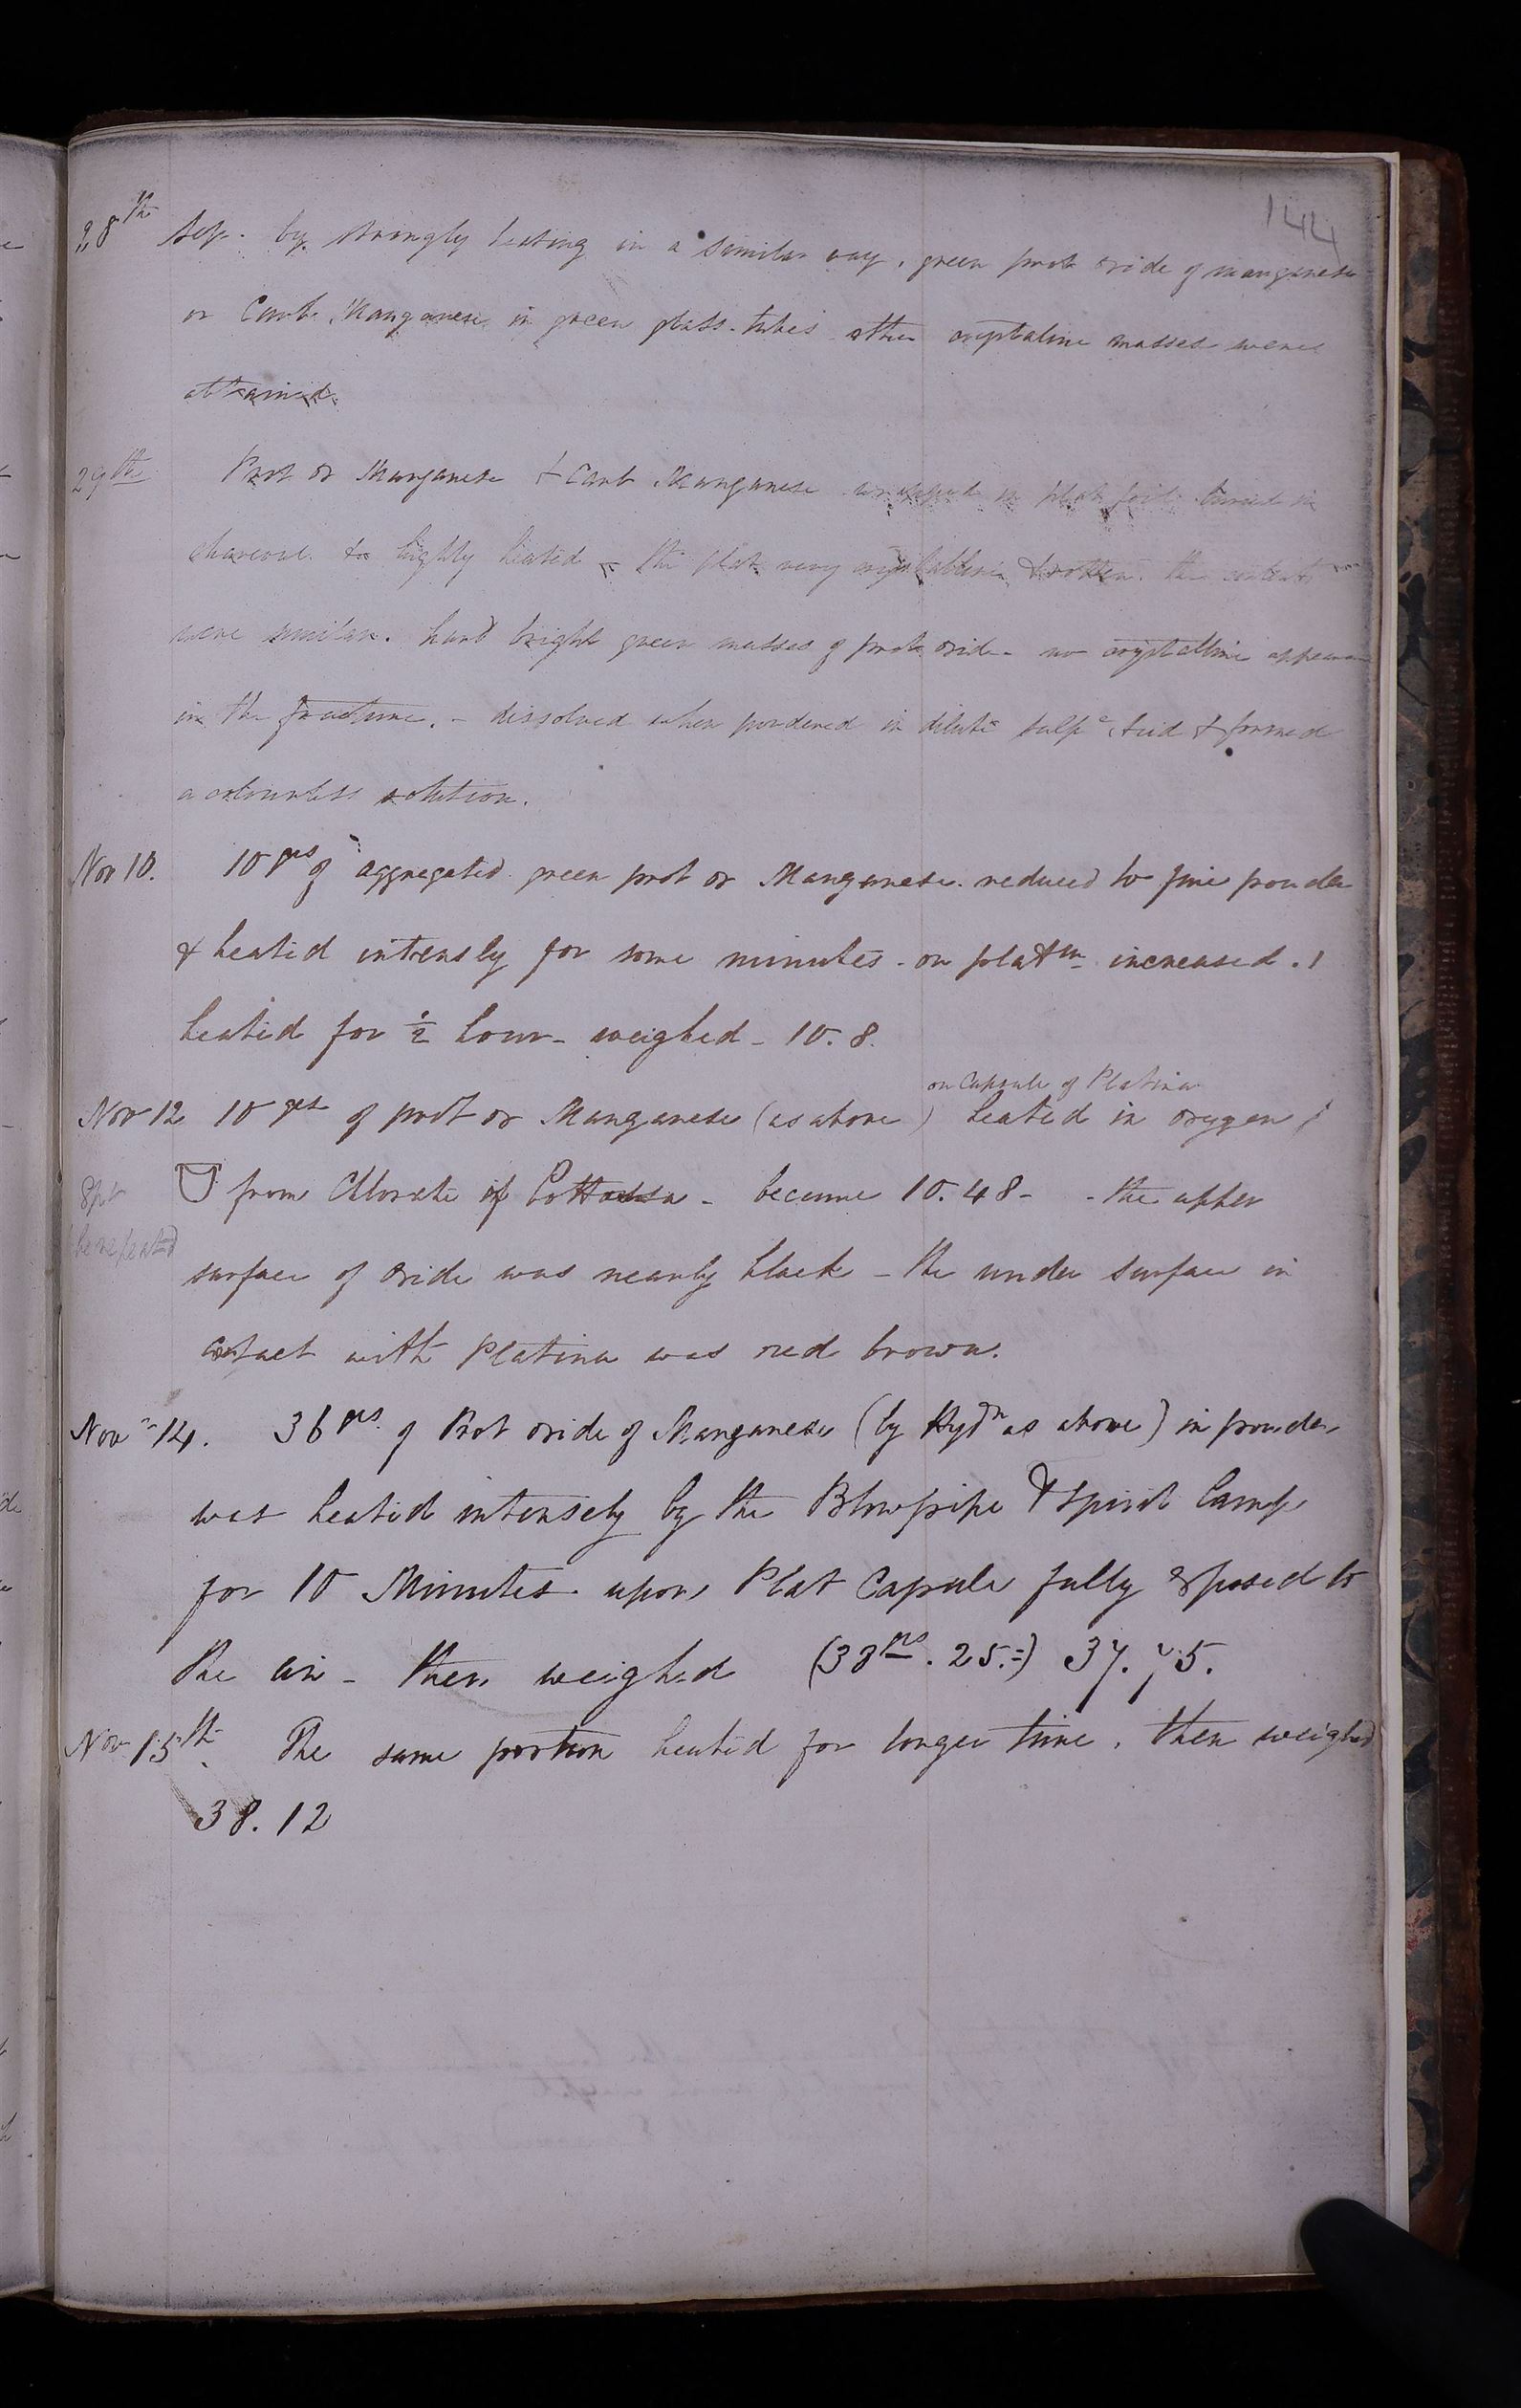 144
28th Sep. by strongly heating in a similar way, green prot oxide of manganese
or Carb. Manganese in green glass-tubes other crystaline masses were
attained.
29th Prot ox Manganese & Carb Manganese wrapped in plat foil buried in
charcoal & highly heated - the plat very crystalline & rotten. the contents
were similar. hard bright green masses of prot oxide - no crystalline appearance
in the fracture. - dissolved when powdered in dilute sulpc Acid & formed
a colourless solution.
Nov 10. 10 grs of aggregated green prot ox Manganese reduced to fine powder
& heated intensly for some minutes - on platm increased .1
heated for ½ hour - weighed - 10.8.
on capsule of Platina
Nov 12 10 grs of prot ox Manganese (as above) heated in oxygen
from Chlorate of Pottassa - became 10.48 - - the upper
be repeated
surface of oxide was nearly black - the under surface in
contact with Platina was red brown.
Nov 14. 36 grs. of Prot oxide of Manganese (by Hydn as above) in powder
was heated intensely by the Blowpipe & Spirit Lamp
for 10 Minutes upon Plat Capsule fully exposed to
the air - then weighed (38grs. 25.=) 37.75.
Nov 15th. The same portion heated for longer time, then weighed
38.12